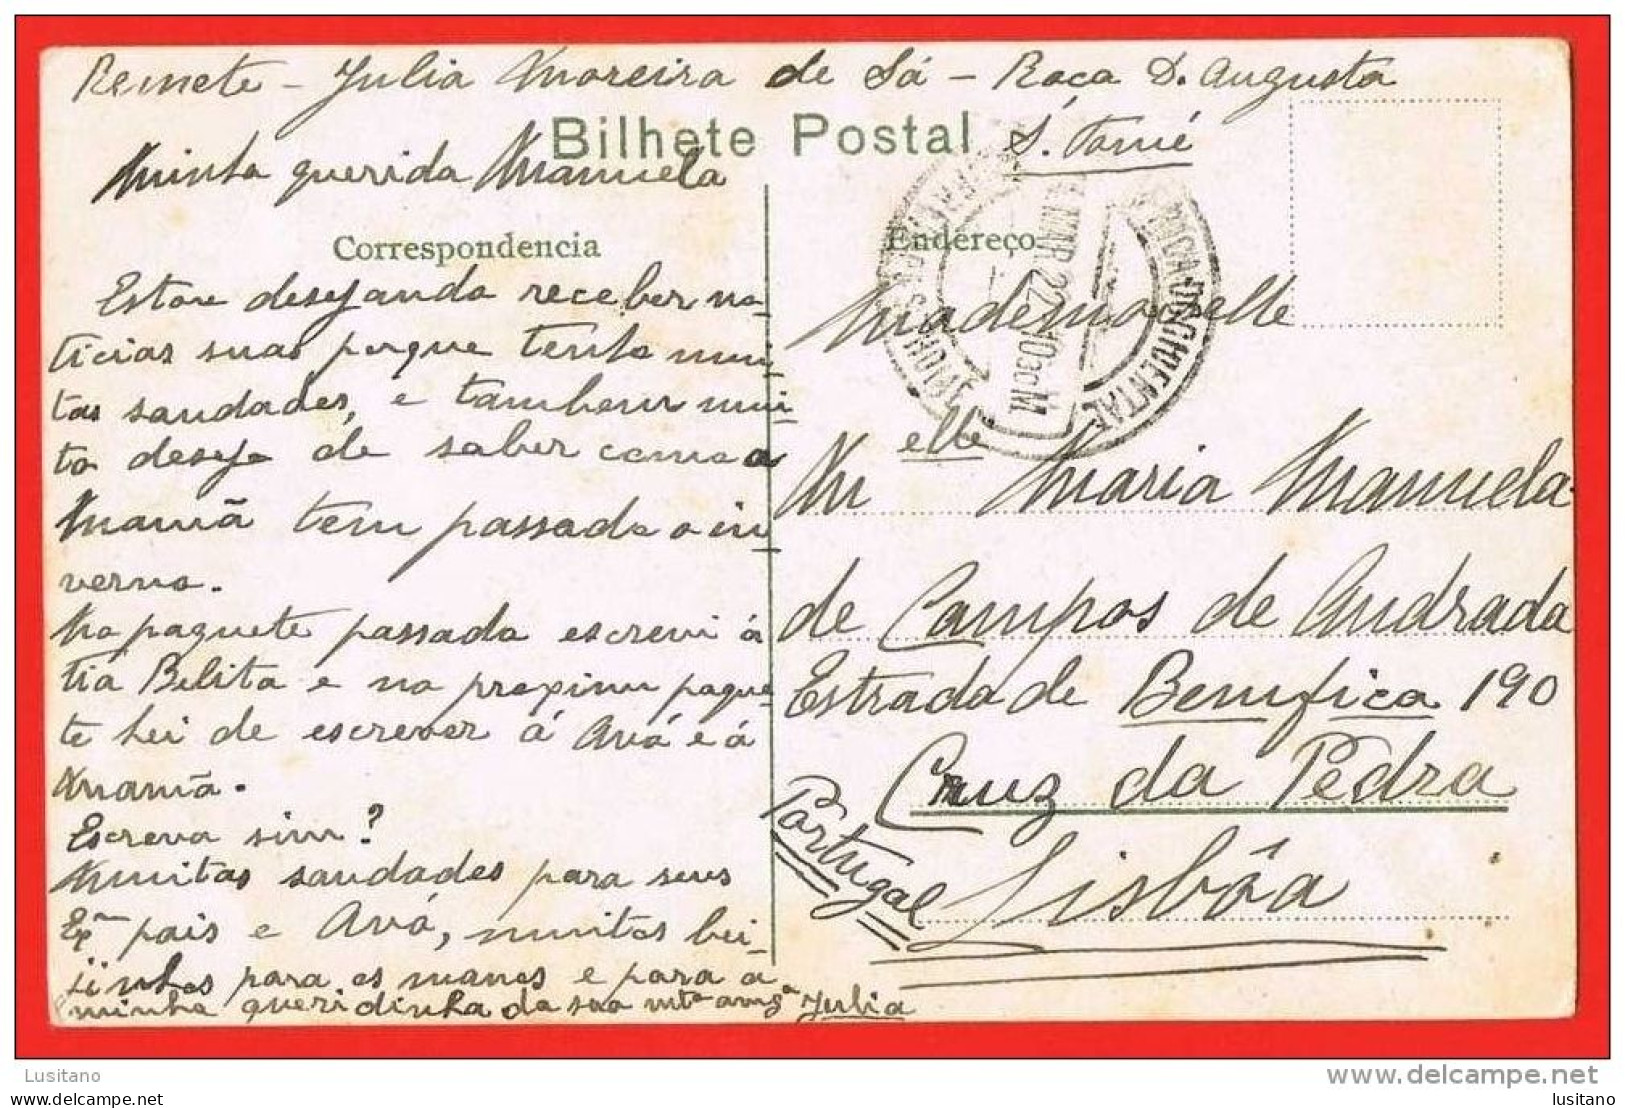 Remete - Julia Moreira de Sá - Roça D. Augusta
S. Tomé
Bilhete Postal
Minha querida Manuela
Correspondencia
Estou desejando receber no-
ticias suas porque tenho mui-
tas saudades, e tambem mui-
to desejo de saber como a
Mamã tem passado o in-
verno.
No paquete passado escrevi á
tia Belita e no proximo paque-
te hei de escrever á Avó e á
Mamã.
Escreva sim?
Muitas saudades para seus
pais e Avó, muitos bei-
jinhos para os manos e para a
minha queridinha da sua mtª amgª Julia
Endereço
Mademoiselle
Melle Maria Manuela
de Campos de Andrada
Estrada de Bemfica 190
Cruz da Pedra
Lisbôa
Portugal
MAR 22
Lusitano
www.delcampe.net
lusitano